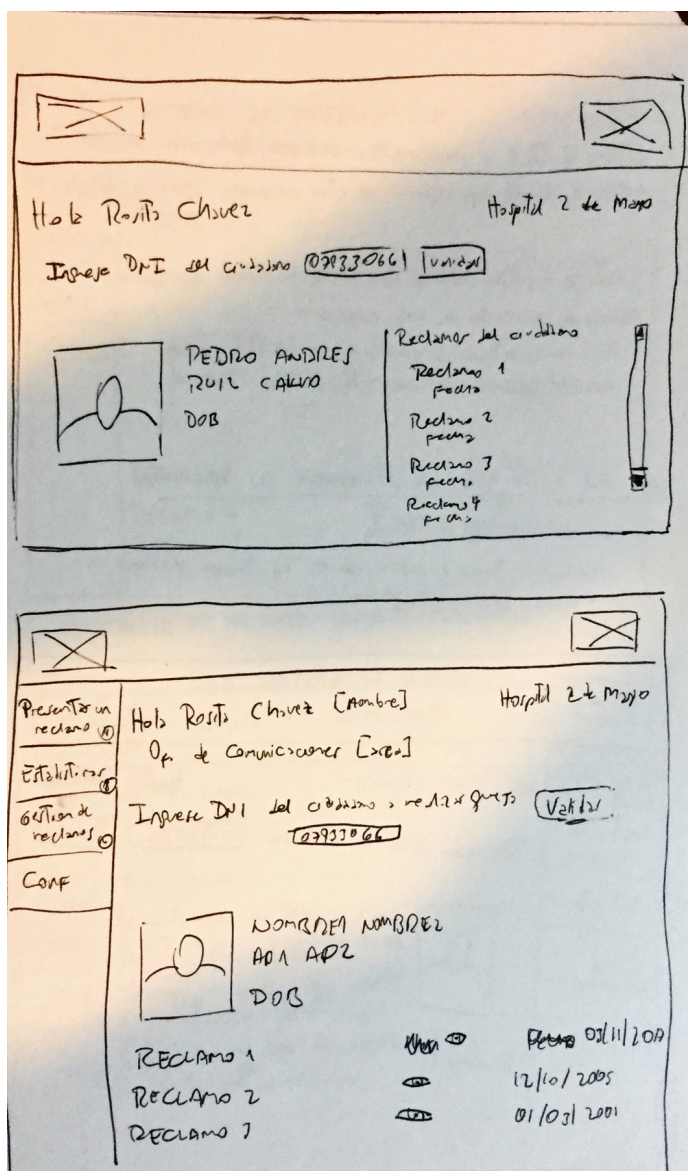 Hola Rosita Chavez
Hospital 2 de Mayo
Ingrese DNI del ciudadano 07933066 Validar
PEDRO ANDRES
RUIZ CALVO
DOB
Reclamos del ciudadano
Reclamo 1
fecha
Reclamo 2
fecha
Reclamo 3
fecha
Reclamo 4
fecha
Presentar un
reclamo
Estadisticas
Gestion de
reclamos
Conf
Hola Rosita Chavez [nombre]
Hospital 2 de Mayo
Of. de Comunicaciones [area]
Ingrese DNI del ciudadano a realizar queja Validar
07933066
NOMBRE1 NOMBRE2
AP1 AP2
DOB
RECLAMO 1
RECLAMO 2 12/10/2005
RECLAMO 3 01/03/2001